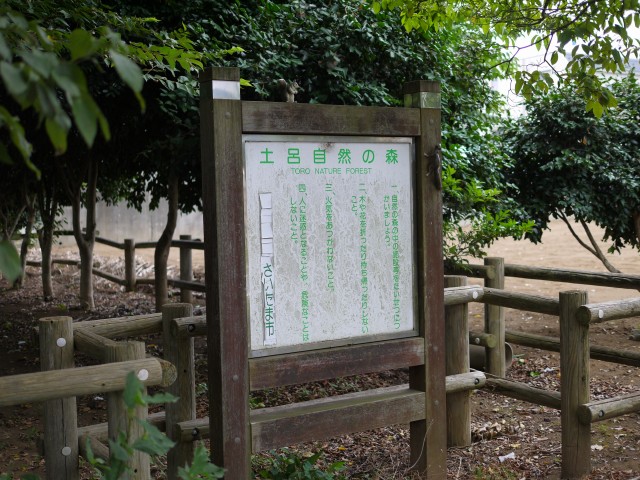 土呂自然の森
TORO NATURE FOREST
一、自然の森の中の
かいましょう。
二、木や花を折ったり持ち帰ったりしない
こと。
三、火気をあつかわないこと。
四、人に迷惑となること や、危険なことは
しないこと。
さいたま市